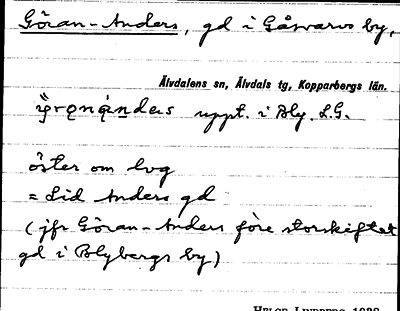 Göran-Anders, gd i Gåsvarvs by,
Älvdalens sn, Älvdals tg, Kopparbergs län.
uppt. i Bly. L.G.
öster om lvg
= Lid Anders gd
(jfr Göran-Anders före storskiftet
gd i Blybergs by)